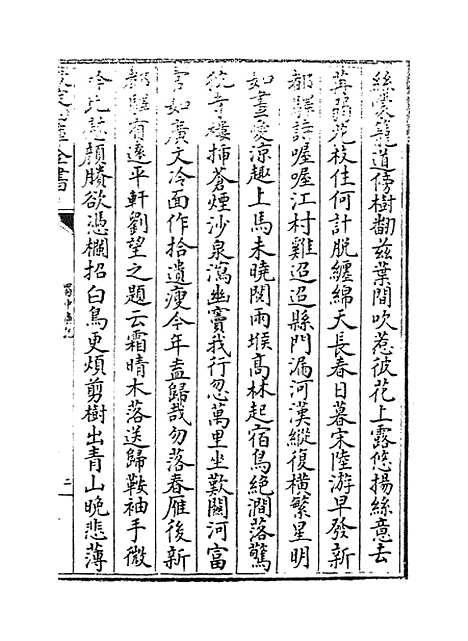 絲蒙籠道傍樹翻茲葉間吹惹彼花上露悠揚絲意去
苒弱花枝住何計脫纏綿天長春日暮宋陸游早發新
都驛詩喔喔江村雞迢迢縣門漏河漢縱復横繁星明
如晝愛涼趣上馬未曉閱兩堠高林起宿鳥絶澗落驚
狖寺樓插蒼煙沙泉瀉幽竇我行忽萬里坐歎關河富
官如廣文冷面作拾遺瘦今年盍歸哉勿落春雁後新
都驛有遂平軒劉望之題云霜晴木落送歸鞍袖手微
吟凭慰顏賸欲憑欄招白鳥更煩剪樹出青山晚悲薄
欽定四庫全書
蜀中廣記
二